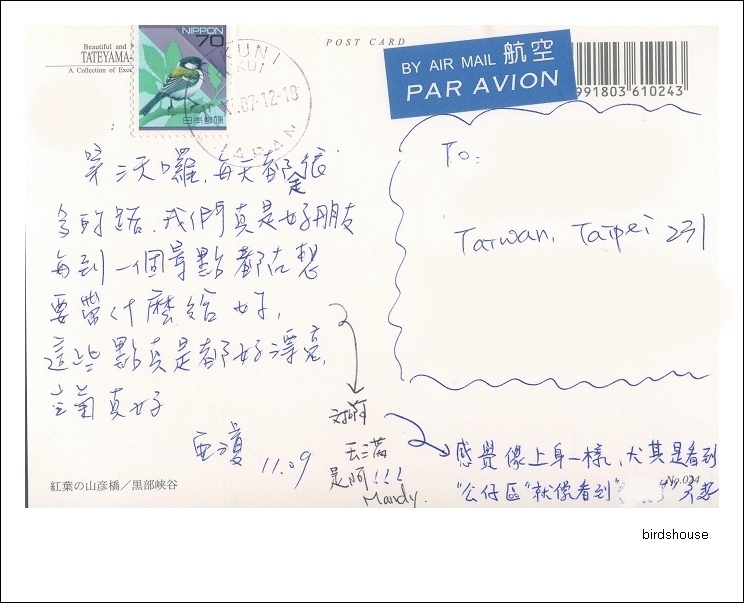 Beautiful and
TATEYAMA-
A Collection of Exce
NIPPON
70
日本郵便
KUNI
12-18
JAPAN
POST CARD
BY AIR MAIL 航空
PAR AVION
991803 610243
To:
Taiwan, Taipei 231
第三天囉, 每天都走很
多的路, 我們真是好朋友
每到一個景點都在想
要帶什麼給妳,
這些點真是都好漂亮,
立蘭真好
11.09
對啊
是阿!!!
Mandy.
感覺像上身一樣, 尤其是看到
"公仔區"就像看到
No.024
紅葉の山彦橋／黒部峡谷
birdshouse